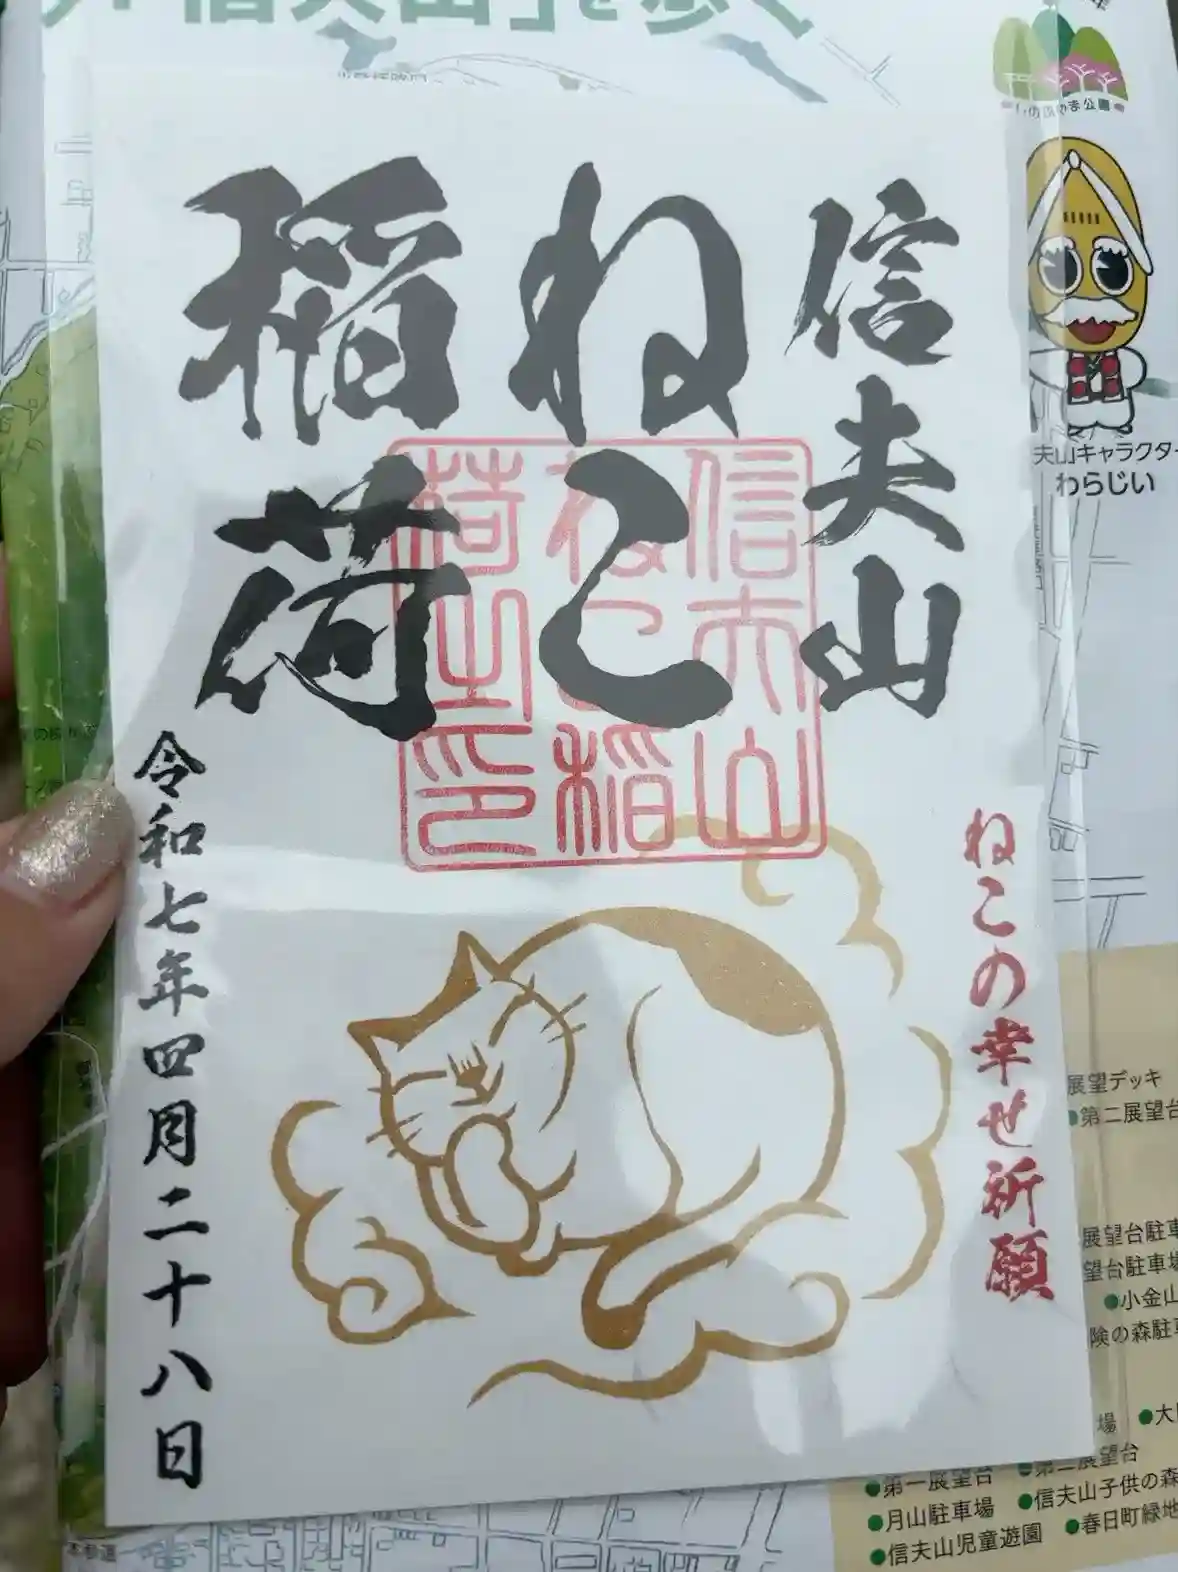 信夫山」を歩く
しのぶやま公園
信夫山
ねこ
稲荷
信夫山
ねこ稲
荷之印
ねこの幸せ祈願
令和七年四月二十八日
夫山キャラクター
わらじい
展望デッキ
●第二展望台
展望台駐車
望台駐車場
●小金山
険の森駐車
場 ●大
●第一展望台 ●第三展望台
●月山駐車場 ●信夫山子供の森
●信夫山児童遊園 ●春日町緑地